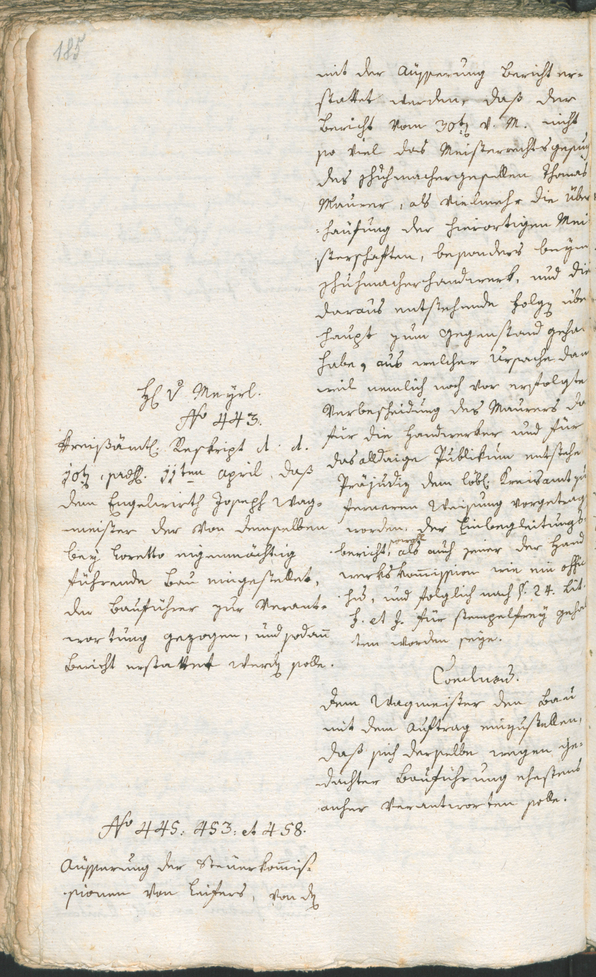 185
mit der Äusserung Bericht er-
stattet werden, daß der
Bericht vom 30t v. M. nicht
so viel das Meisterrechtsgesuch
des Schuhmachergesellen Thomas
Maurer, als vielmehr die Über
häufung der hierortigen Mei
sterschaften, besonders beym
Schuhmacherhandwerk, und die
daraus entstehende Folge übe
haupt zum Gegenstand geha
habe, aus welcher Ursache dan
weil nemlich noch vor erfolgte
Verbescheidung des Maurers da
für die Handwerker und für
das alldaige Publikum entstehe
Präjudiz dem löbl. Kreisamt zu
ferneren Weisung vorgetrag
worden, der Einbegleitungs-
bericht, sowohl als auch jener der Hand
werkskommission wie ein offi
, und folglich nach §. 24. Lit.
h. et J. für stempelfrey geha
ten worden seye.
H v Meyrl.
No 443.
Kreisämtl. Reskript d. d.
10t, praes. 11ten April, daß
dem Engelwirth Joseph Wag-
meister der von demselben
bey Loretto eigenmächtig
führende Bau eingestellet,
der Bauführer zur Verant-
wortung gezogen, und sodann
Bericht erstattet werden solle.
Conclusum.
Dem Wagmeister den Bau
mit dem Auftrag einzustellen,
daß sich derselbe wegen ge-
dachter Bauführung ehestens
anher verantworten solle.
No 445. 453. et 458.
Äusserung der Steuerkommis-
sionen von Leifers, von